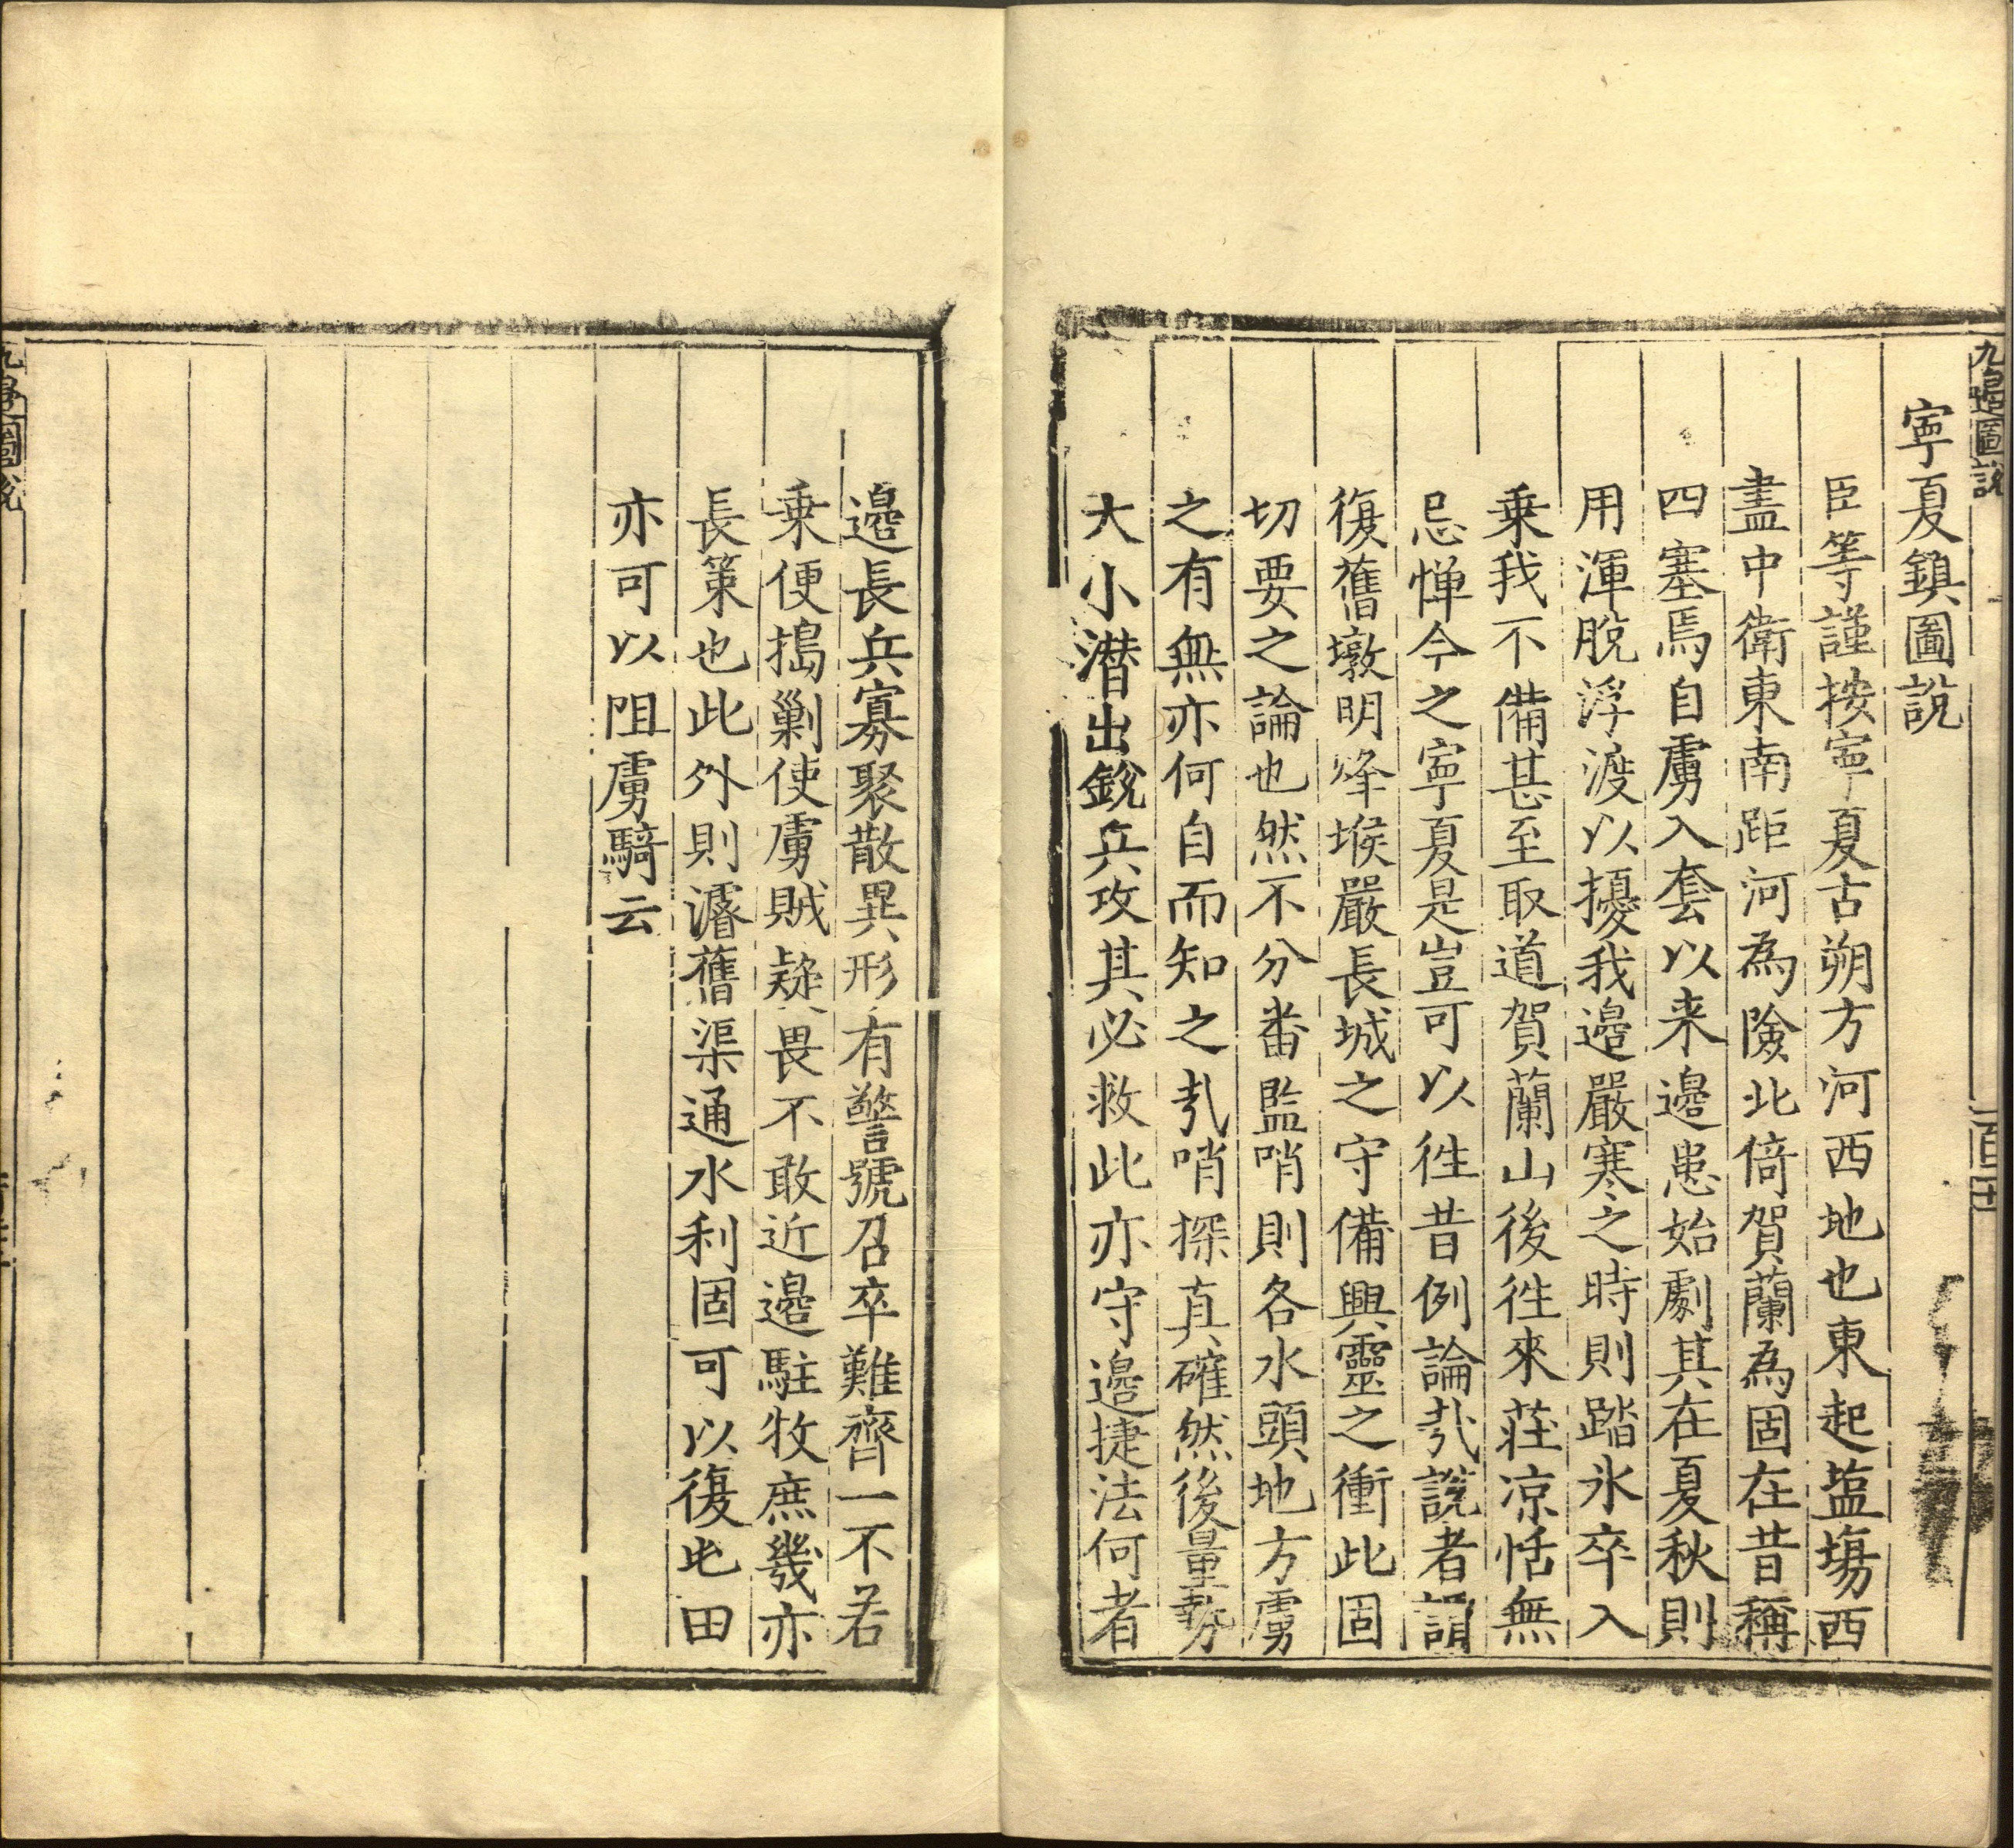 九邊圖說
寧夏鎮圖說
臣等謹按寧夏古朔方河西地也東起塩塲西
盡中衛東南距河為險北倚賀蘭為固在昔稱
四塞焉自虜入套以来邊患始劇其在夏秋則
用渾脫浮渡以擾我邊嚴寒之時則踏氷卒入
乗我不備甚至取道賀蘭山後徃來荘凉恬無
忌惮今之寧夏是豈可以徃昔例論㢤說者謂
復舊墩明烽堠嚴長城之守備興靈之衝此固
切要之論也然不分番監哨則各水頭地方虜
之有無亦何自而知之㢤哨探真確然後量勢
大小潜出銳兵攻其必救此亦守邊捷法何者
邊長兵寡聚散異形有警號召卒難齊一不若
乗便搗剿使虜賊疑畏不敢近邊駐牧庶幾亦
長策也此外則濬舊渠通水利固可以復屯田
亦可以阻虜騎云
九邊圖說